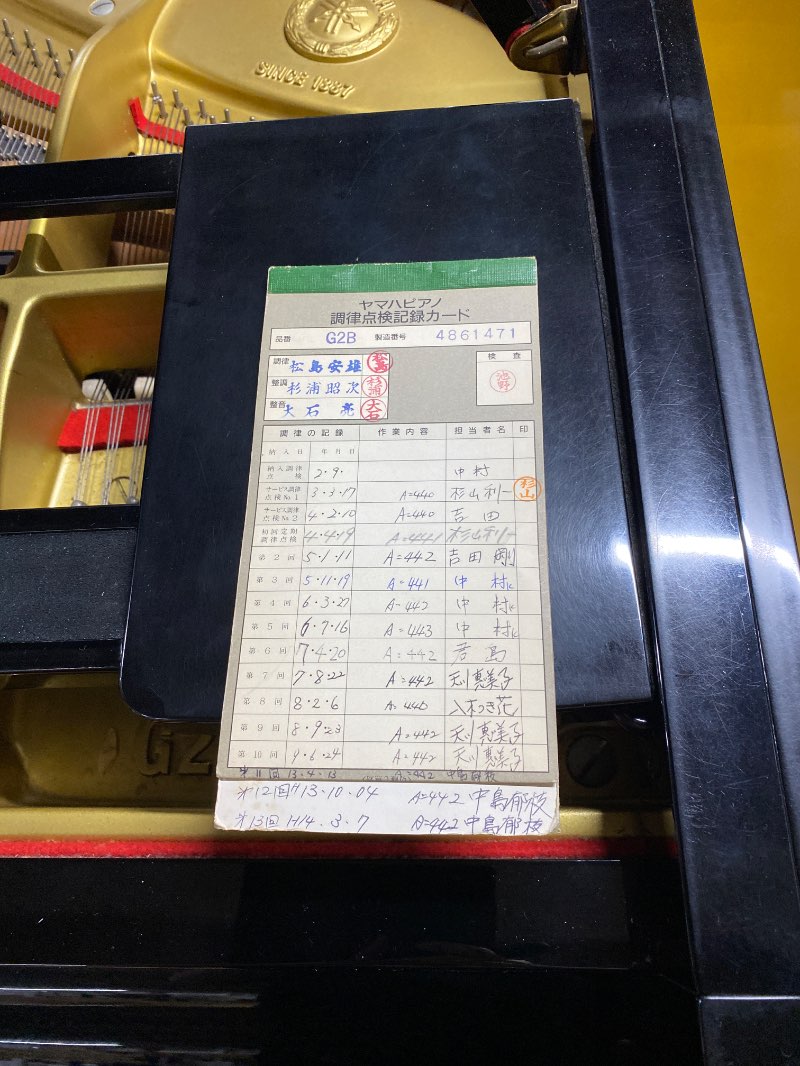 SINCE 1887
ヤマハピアノ
調律点検記録カード
品番 G2B 製造番号 4861471
調律 松島安雄 松島
整調 杉浦昭次 杉浦
整音 大石亮 大石
検査
池野
調律の記録 作業内容 担当者名 印
納入日 年月日
納入調律点検 2・9・ 中村
サービス調律点検No.1 3・3・17 A=440 杉山利一 杉山
サービス調律点検No.2 4・2・10 A=440 吉田
初回定期調律点検 4・4・19 A=441 杉山利一
第2回 5・1・11 A=442 吉田剛
第3回 5・11・19 A=441 中村K
第4回 6・3・27 A=442 中村K
第5回 6・7・16 A=443 中村K
第6回 7・4・20 A=442 君島
第7回 7・8・22 A=442 天川恵美子
第8回 8・2・6 A=440
第9回 8・9・23 A=442 天川恵美子
第10回 9・6・24 A=442 天川恵美子
第11回 13・4・13 A=442 中島郁枝
第12回 H13・10・04 A=442 中島郁枝
第13回 H14・3・7 A=442 中島郁枝
G2